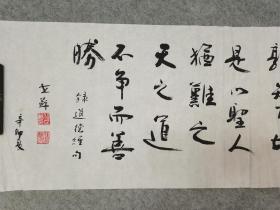 是以聖人
猶難之
天之道
不争而善
勝
錄道德經句
辛卯夏